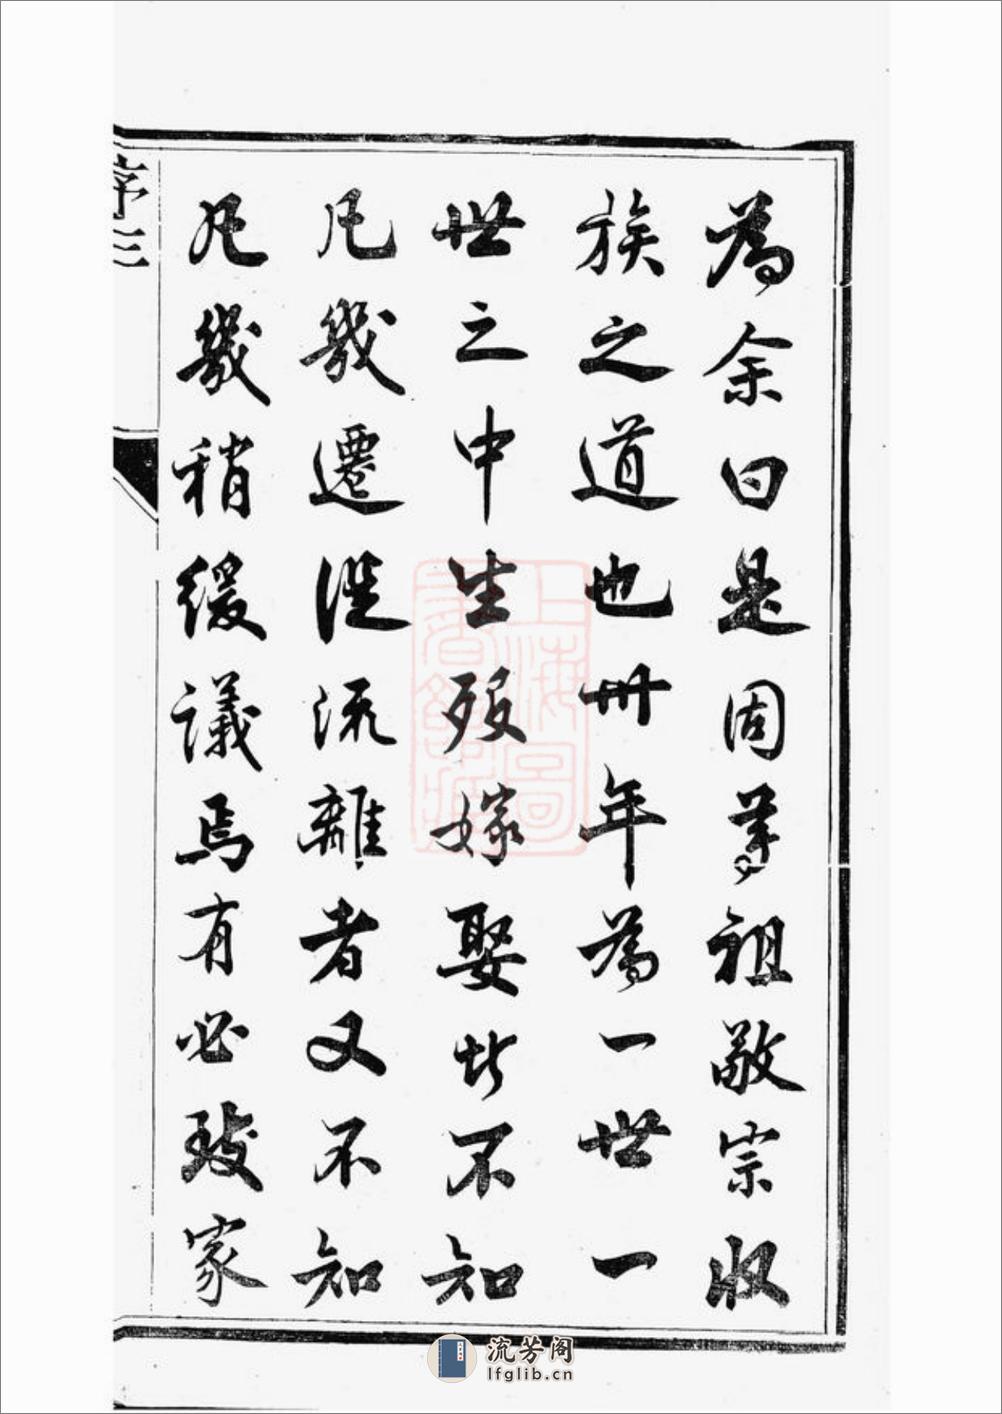 為余曰是固尊祖敬宗收
族之道也卅年為一世一
世之中生歿嫁娶皆不知
凡幾遷徙流離者又不知
凡幾稍緩議焉有必致家
序三
上海圖書館藏
流芳阁
lfglib.cn